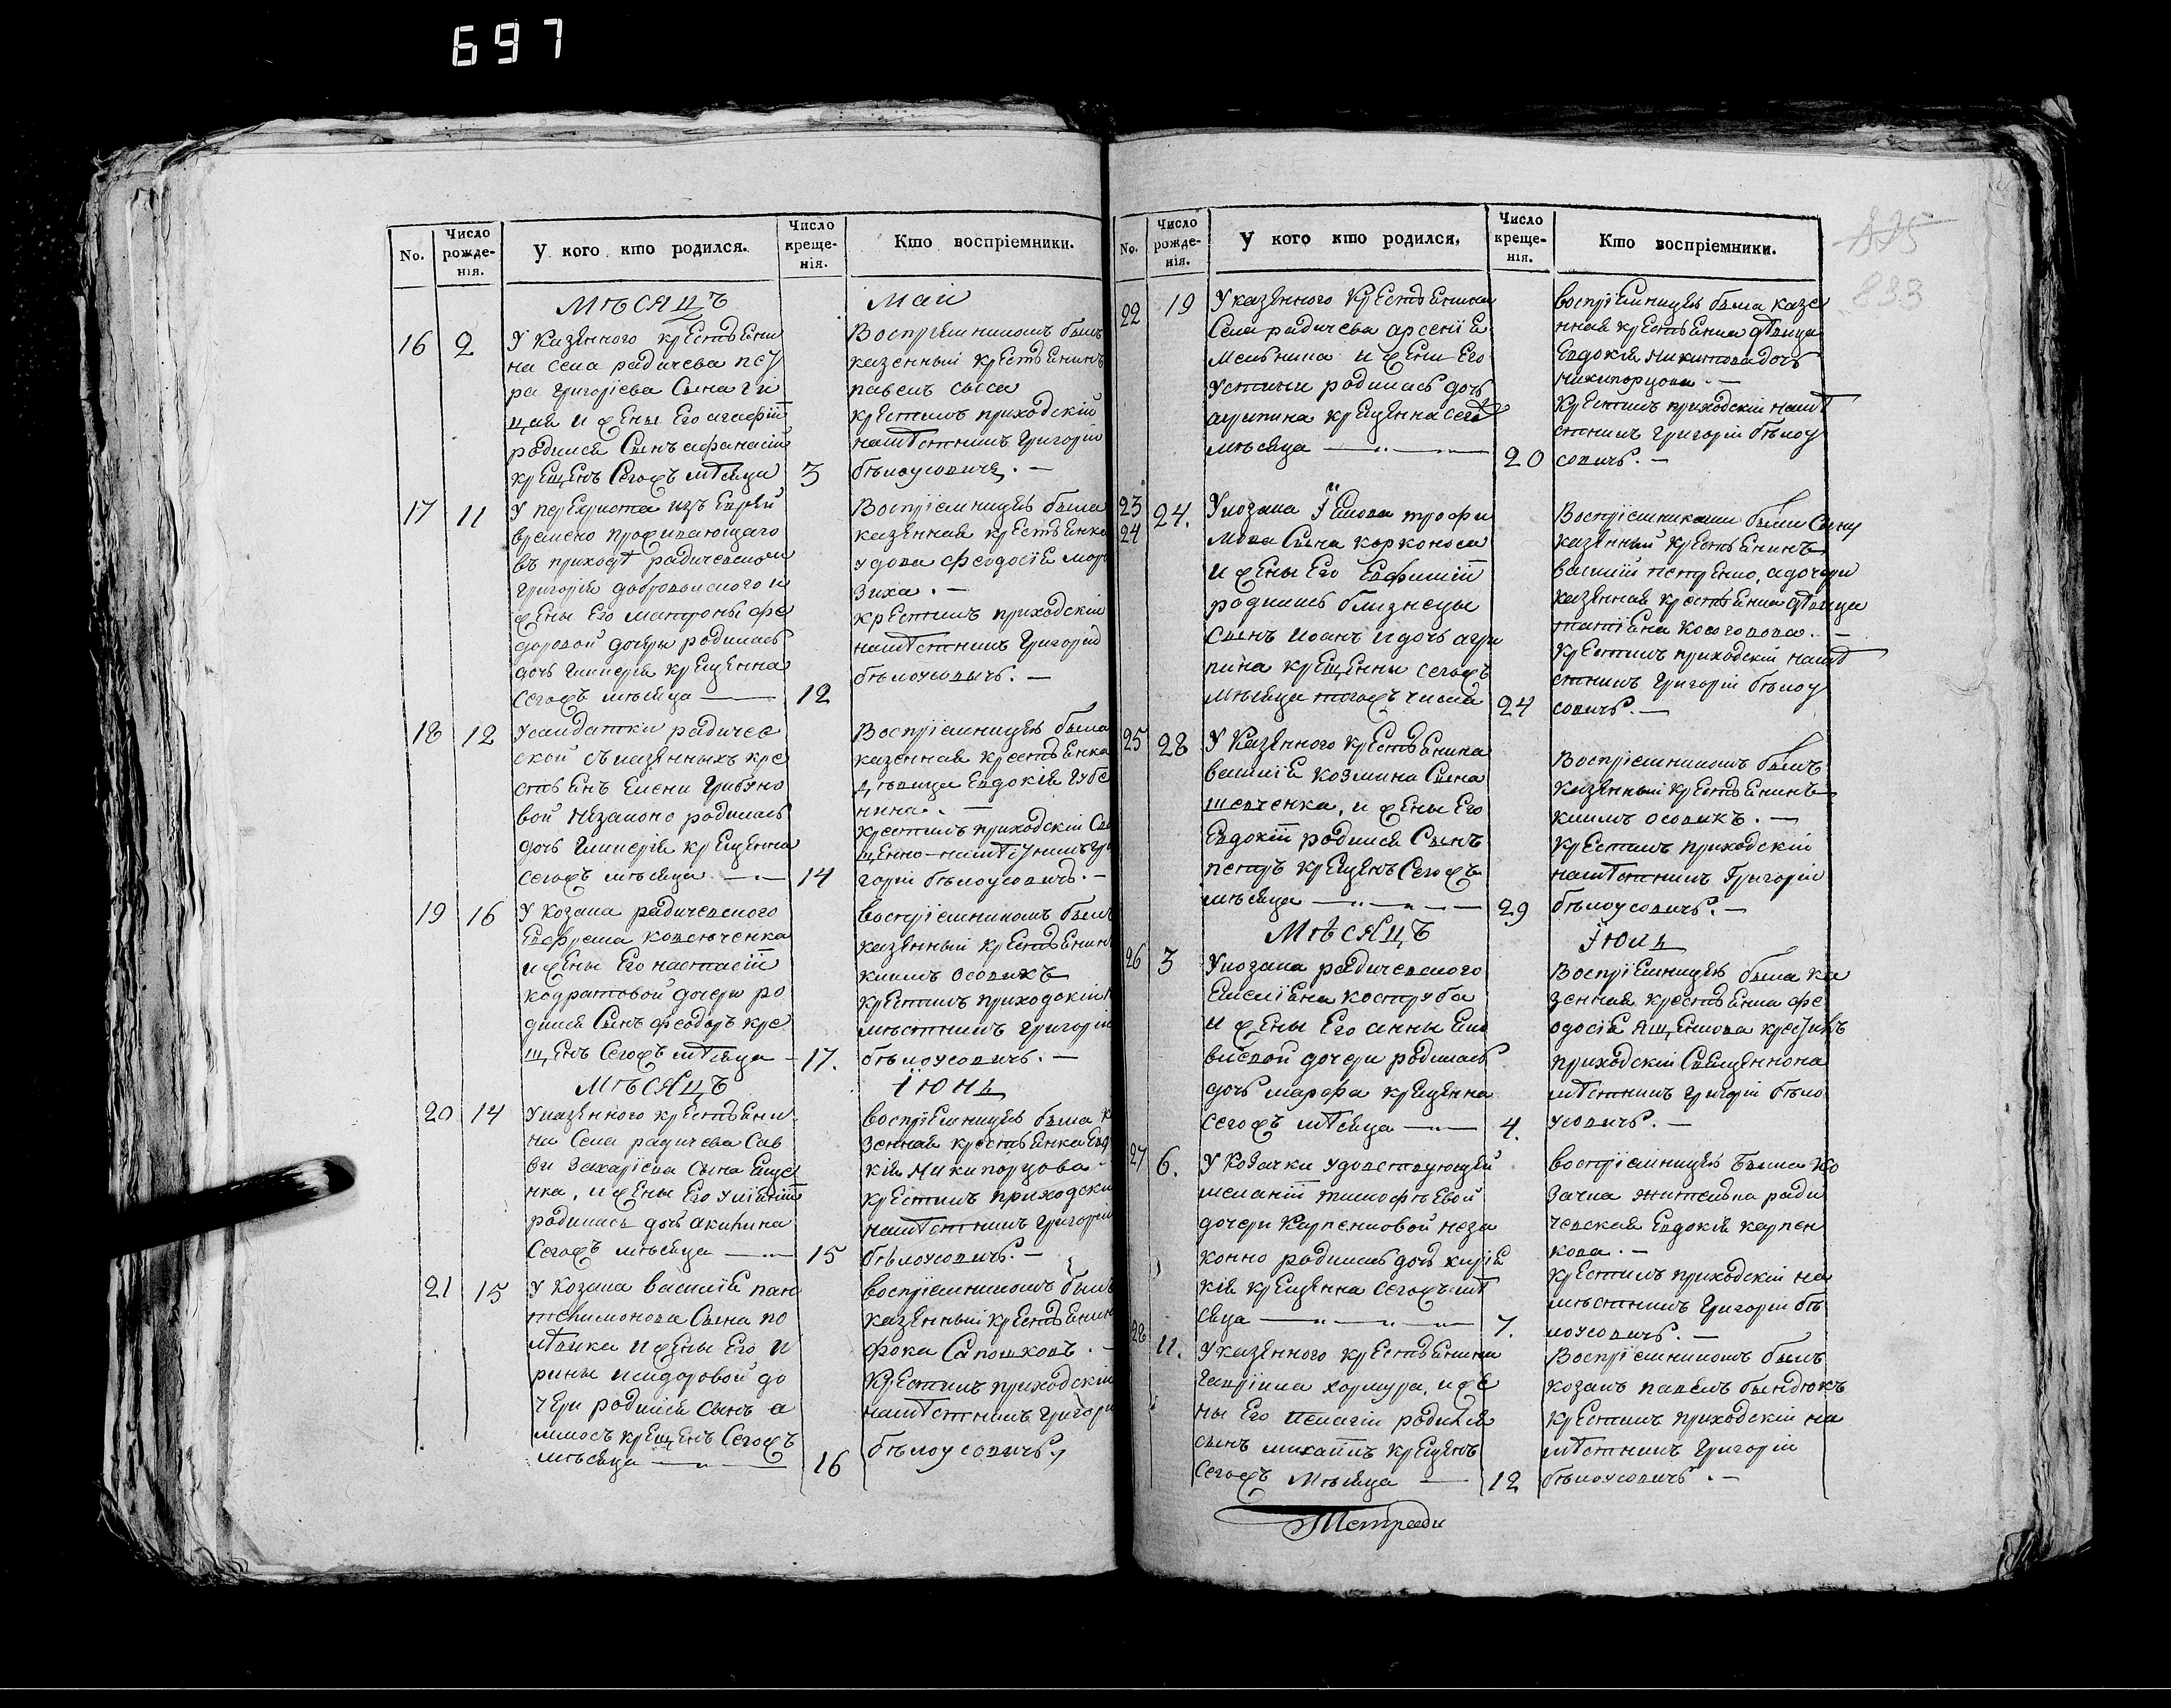 697
No.
Число рожде-нія.
У кого кто родился.
Число креще-нія.
Кто воспріемники.
Мѣсяцъ
Май
16 2
У Казенного крестьяни
на села радичева пет
ра григоріева Сына ги
цая и жены Его агафіи
родился Сынъ афанасій
крещенъ Сегожъ мѣсяца 3
Воспріемникомъ былъ
казенный крестьянинъ
павелъ сыса
крестилъ приходскій
намѣстникъ григорій
бѣлоусовичъ. —
17 11
У перехриста изъ Еврей
времено проживающаго
въ приходѣ радичевском
григорія добровольского и
жены Его матроны фе
доровой дочеры родилась
дочь гликерія крещенна
Сегожъ мѣсяца — 12
Воспріемницею была
казенная крестьянка
удова феодосія
зиха. —
крестилъ приходскій
намѣстникъ григорій
бѣлоусовичъ. —
18 12
У салдатки радичев
ской съ казенныхъ кре
стьянъ Елены
вой незаконо родилась
дочь гликерія крещенна
сегожъ мѣсяца — 14
Воспріемницею была
казенная крестьянка
дѣвица Евдокія губе
нина. —
крестилъ приходскій Свя
щенно-намѣстникъ гри
горій бѣлоусовичъ. —
19 16
У Козака радичевского
Евфрема
и жены Его настасіи
кодратовой дочери ро
дился Сынъ феодоръ кре
щенъ Сегожъ мѣсяца — 17.
воспріемникомъ былъ
казенный крестьянин
климъ осовикъ
крестилъ приходскій н
мѣстникъ григорій
бѣлоусовичъ. —
Мѣсяцъ
Іюнь
20 14
У казенного крестьяни
на Села радичева Сав
ви Захаріева сына Еще
нка, и жены Его уліяніи
родилась дочь акилина
Сегожъ мѣсяца — 15
воспріемницею была к
зенная крестьянка Евд
кія Никипорцова
крестилъ приходски
намѣстникъ григорій
бѣлоусовичъ. —
21 15
У Козака василія пан
телимонова Сына по
лѣвика и жены Его И
рины исидоровой до
чери родился сынъ а
ммосъ крещенъ Сегожъ
мѣсяца — 16
воспріемникомъ былъ
казенный крестьянин
фока Сапошковъ. —
Крестилъ приходскій
намѣстникъ григори
бѣлоусовичъ.
No.
Число рожде-нія.
У кого кто родился.
Число креще-нія.
Кто воспріемники.
835
833
22 19
У казенного Крестьянина
Села радичева арсенія
мельника и жены Его
Устины родилась дочь
агрипина крещенна сего
мѣсяца — 20
воспріемницею была казе
нная крестьянка дѣвица
Евдокія никитова дочь
никипорцова. —
Крестилъ приходскій намѣ
стникъ григорій бѣлоу
совичъ. —
23
24
24.
У козака трофи
мова Сына корконоса
и жены Его Евфиміи
родились близнецы
Сынъ иоанъ и дочь агри
пина крещенны сегожъ
мѣсяца тогожъ числа 24
Воспріемниками были Сыну
казенный крестьянинъ
василій петренко, а дочери
казенная крестьянка дѣвица
татіяна косоговова. —
Крестилъ приходскій намѣ
стникъ григорій бѣлоу
совичъ. —
25 28
У Казенного крестьянина
василія козмина Сына
шевченка, и жены Его
Евдокіи родился Сынъ
петръ крещенъ Сегожъ
мѣсяца — 29
Воспріемникомъ былъ
Казенный крестьянинъ
климъ осовикъ. —
Крестилъ приходскій
намѣстникъ Григорій
бѣлоусовичъ. —
Мѣсяцъ
Іюль
26 3
У козака радичевского
Емеліяна коструба
и жены Его анны
виевой дочери родилась
дочь марфа крещенна
сегожъ мѣсяца — 4.
Воспріемницею была ка
зенная крестьянка фе
одосія Ященкова крестивъ
приходскій Священнона
мѣстникъ григорій бѣло
усовичъ. —
27 6.
У Козачки удовствующей
меланіи тимофѣевой
дочери Карпенковой неза
конно родилась дочь киріа
кія крещенна сегожъ мѣ
сяца — 7.
воспріемницею Была ко
зачка жителька ради
чевская Евдокія карпен
кова. —
Крестилъ приходскій на
мѣстникъ григорій бѣ
лоусовичъ. —
28 11.
У казенного крестьянина
гавріила хормура, и же
ны Его пелагіи родился
сынъ михаилъ крещенъ
Сегожъ Мѣсяца — 12
Воспріемникомъ былъ
козакъ павелъ бындюкъ
крестилъ приходскій на
мѣстникъ григорій
бѣлоусовичъ. —
Тетради